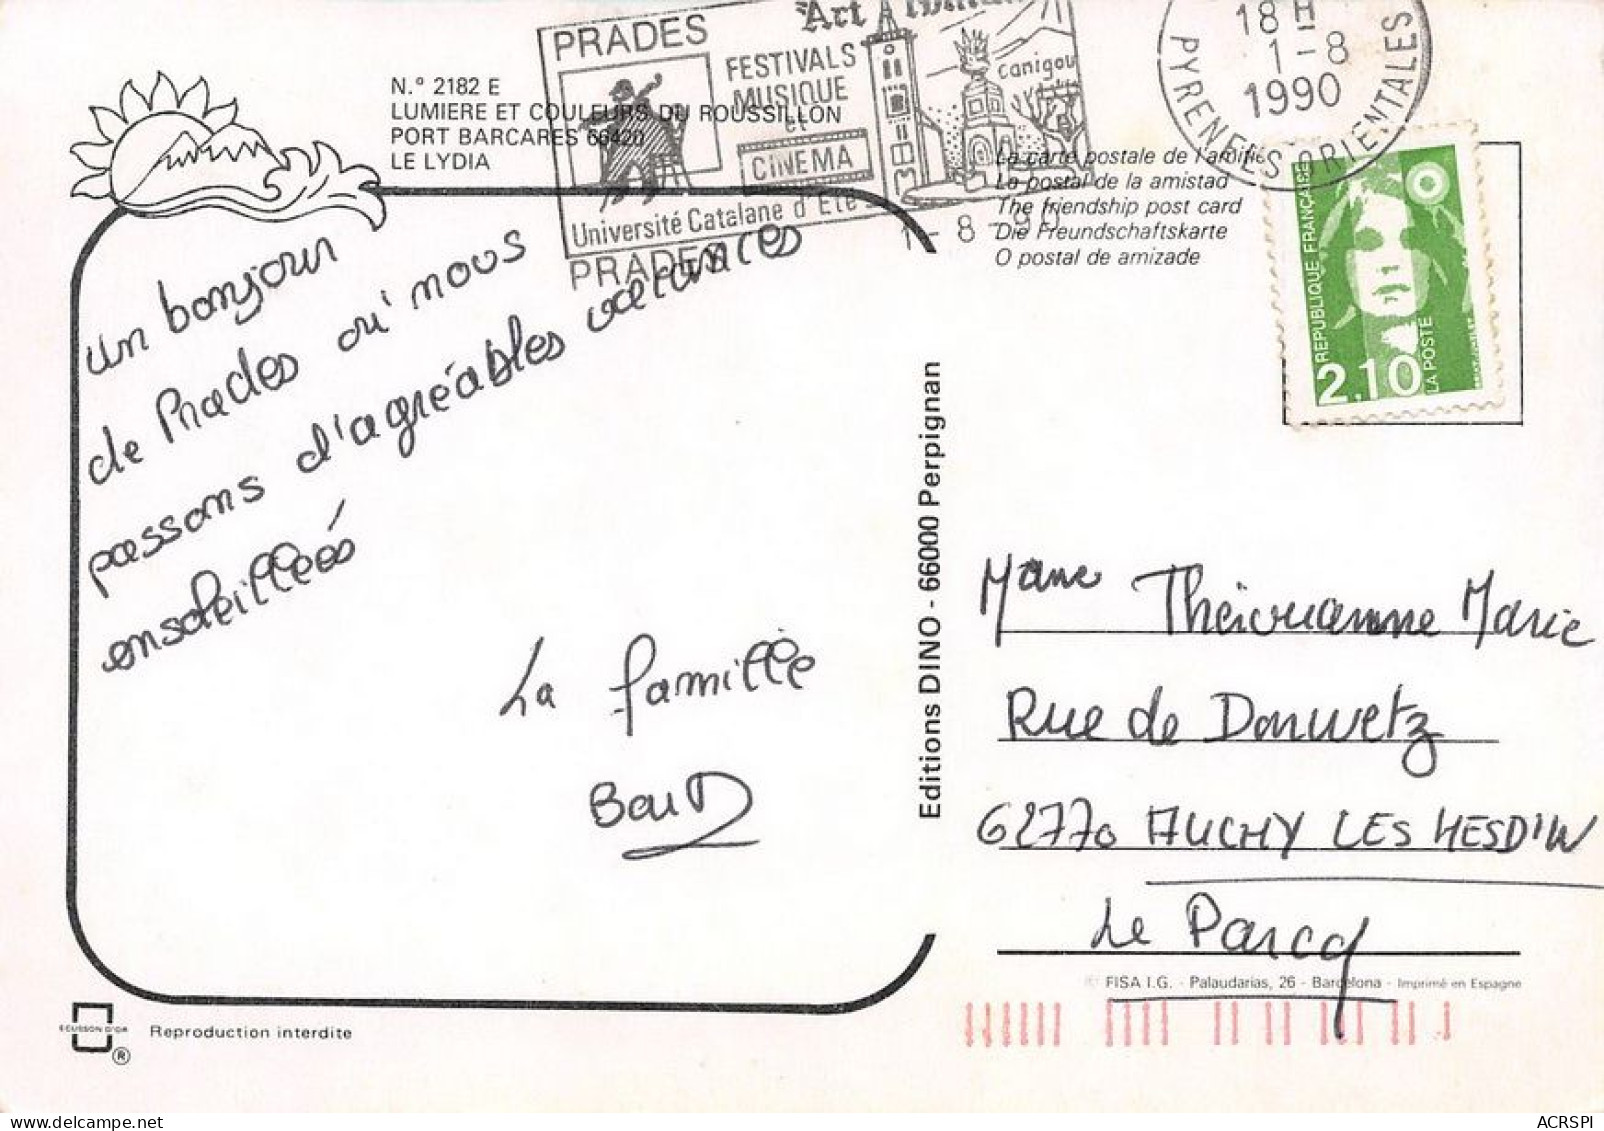 N.° 2182 E
LUMIERE ET COULEURS DU ROUSSILLON
PORT BARCARES 66420
LE LYDIA
PRADES
FESTIVALS
MUSIQUE
et
CINEMA
Université Catalane d'Eté
PRADES
Art
Canigou
1-8-9
18H
1-8
1990
PYRENEES ORIENTALES
La carte postale de l'amitié
La postal de la amistad
The friendship post card
Die Freundschaftskarte
O postal de amizade
REPUBLIQUE FRANÇAISE
2,10
LA POSTE
un bonjour
de Prades où nous
passons d'agréables vacances
ensoleillées
La famille
Editions DINO - 66000 Perpignan
Mme Marie
Rue de
62770 AUCHY LES HESDIN
Le Parcq
FISA I.G. - Palaudarias, 26 - Barcelona - Imprimé en Espagne
ECUSSON D'OR
®
Reproduction interdite
ACRSPI